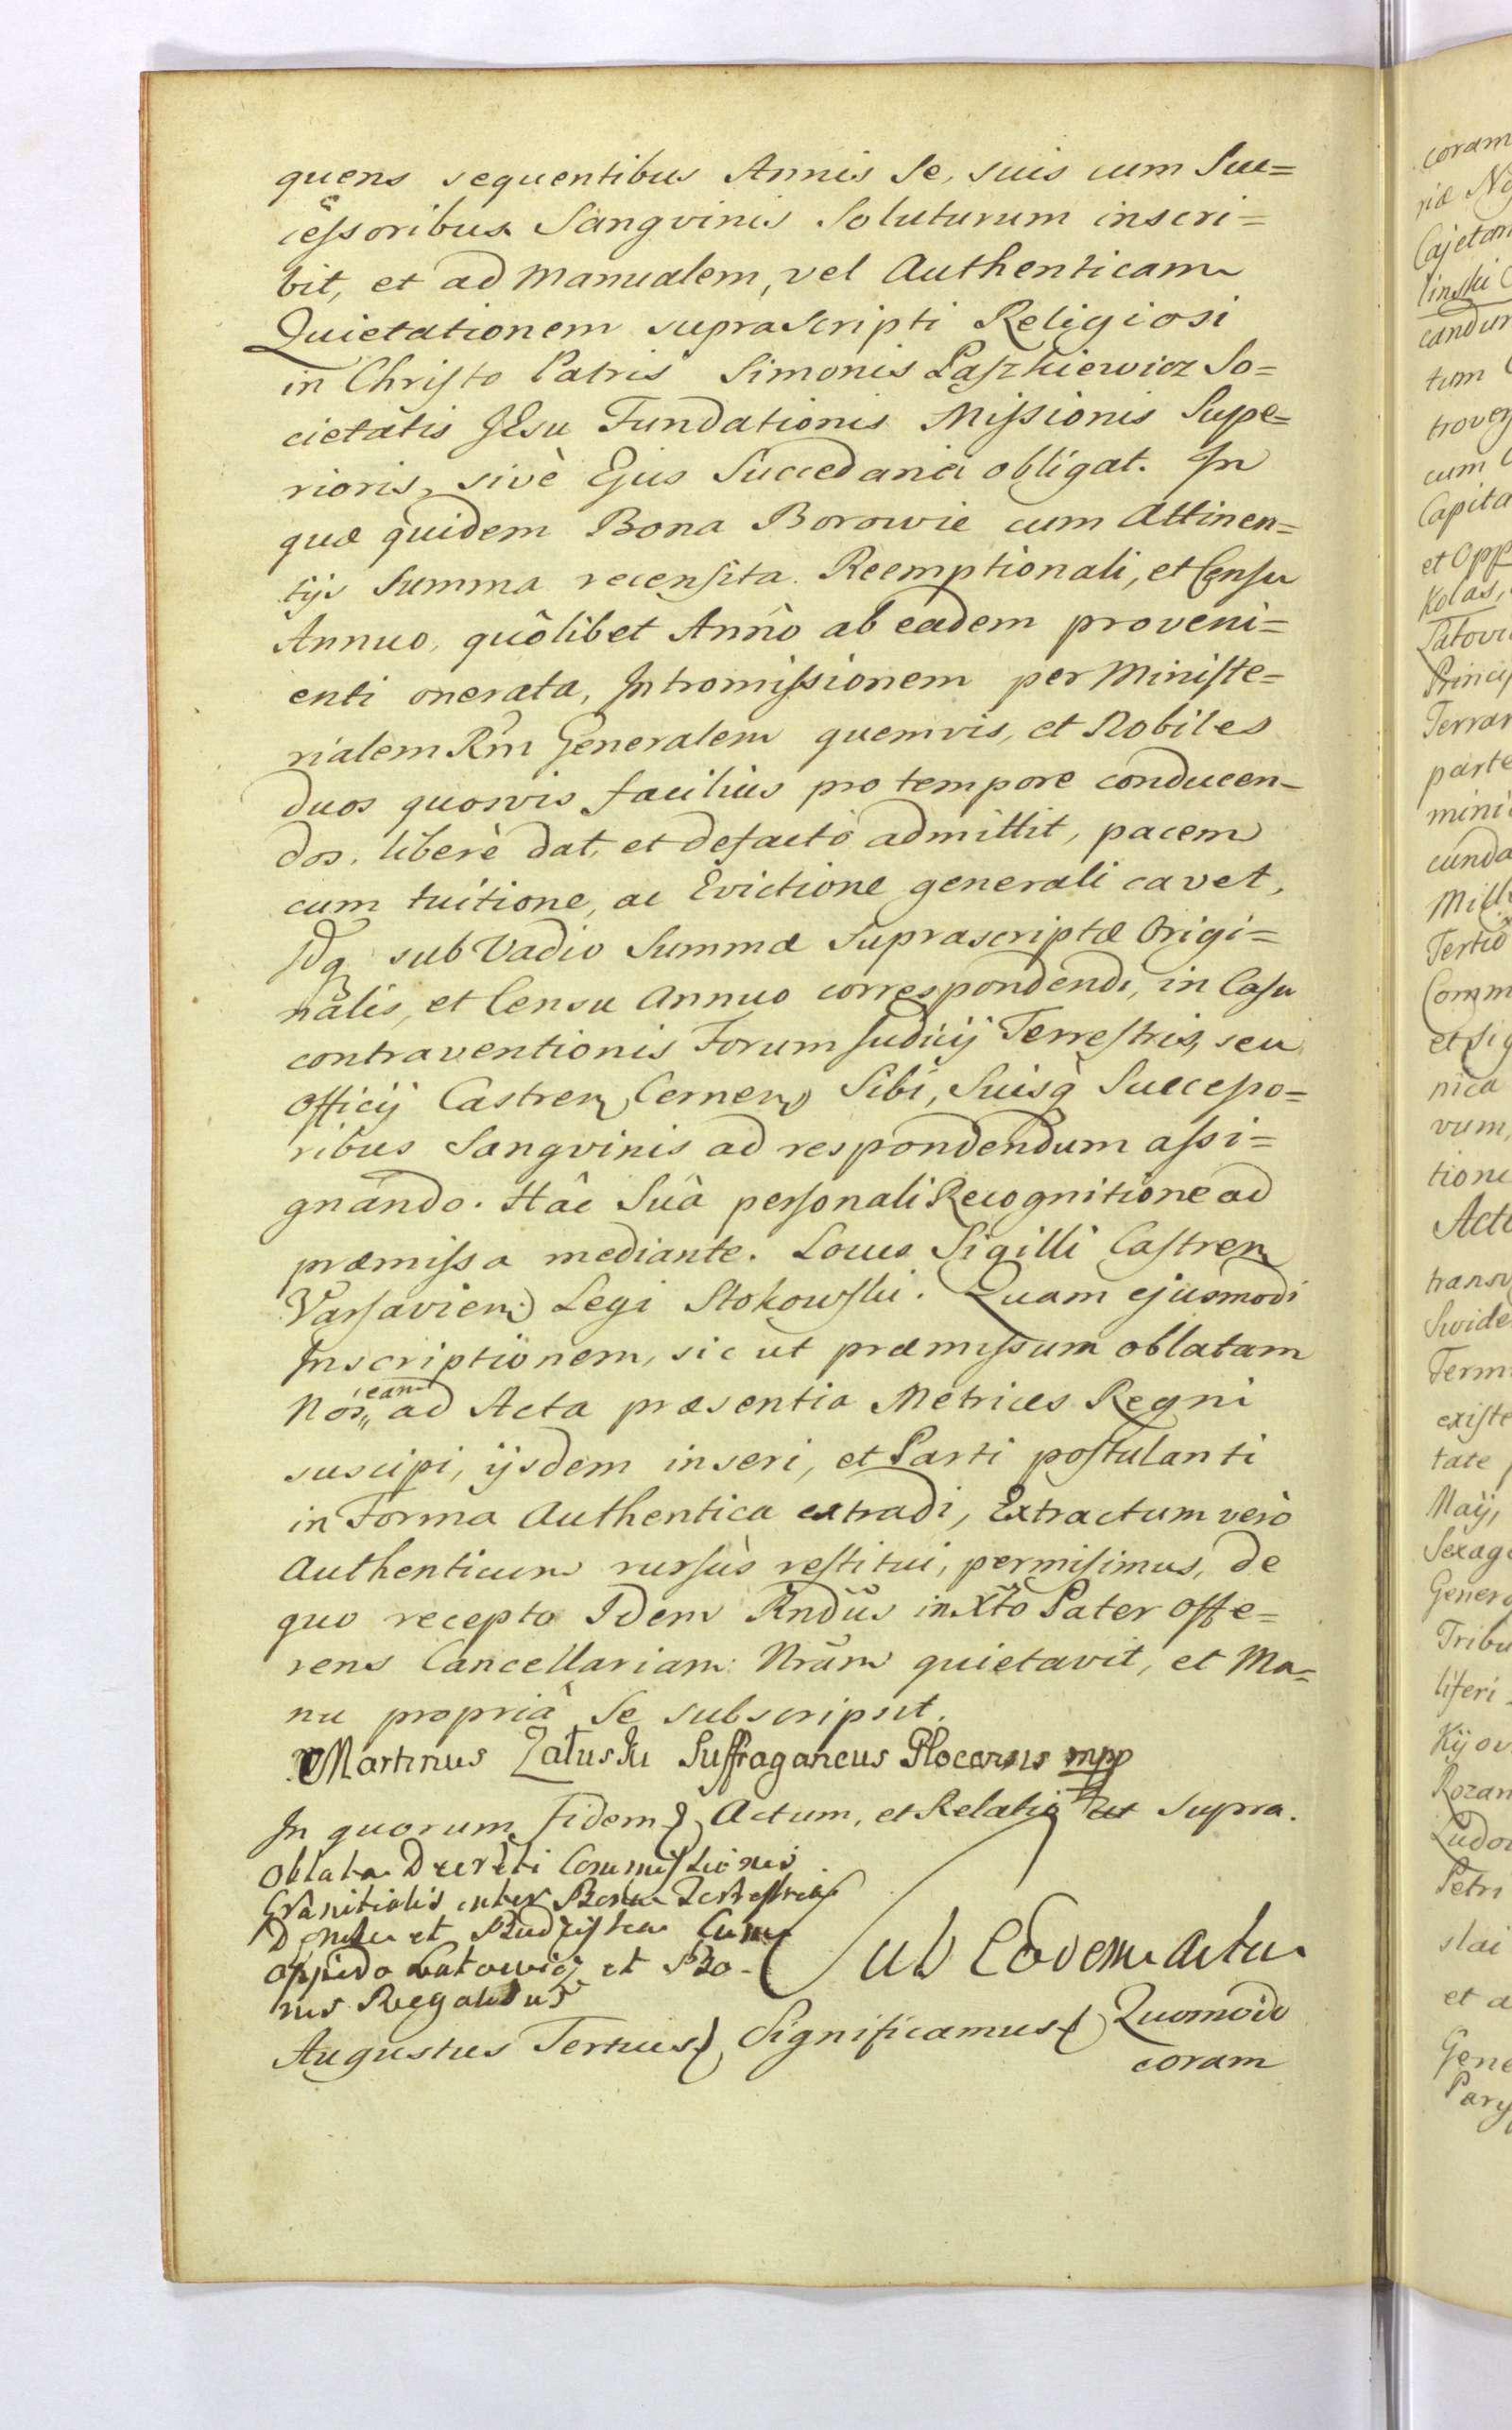 quens sequentibus Annis Se, suis cum Suc=
cessoribus Sangvinis Soluturum inscri=
bit, et ad Manualem, vel Authenticam
Quietationem supraScripti Religiosi
in Christo Patris Simonis Paszkiewicz So=
cietatis JEsu Fundationis Missionis Supe=
rioris, sivè Ejus Succedanei obligat. In
quæ quidem Bona Borowie cum Attinen=
tijs Summa recensita Reemptionali, et Censu
Annuo, quôlibet Anno ab eadem proveni=
enti onerata, Intromissionem per Ministe=
rialem Rni Generalem quemvis, et Nobiles
duos quosvis facilius pro tempore conducen=
dos, liberè dat, et defacto admittit, pacem
cum tuitione, ac Evictione generali cavet,
Idq sub Vadio Summæ Suprascriptæ Origi=
nalis, et Censu Annuo correspondendi, in Casu
contraventionis Forum Judicij Terrestris, seu
Officij Castren, Cernen, Sibi, Suisq Successo=
ribus Sangvinis ad respondendum assi=
gnando. Hâc Suâ personali Recognitione ad
præmissa mediante. Locus Sigilli Castren
Varsavien:) Legi Stokowski. Quam ejusmodi
Inscriptionem, sic ut præmissum oblatam
Nos, eam ad Acta præsentia Metrices Regni
suscipi, ijsdem inseri, et Parti postulanti
in Forma Authentica extradi, Extractum verò
Authenticum rursùs restitui, permisimus, de
quo recepto Idem Rndûs in Xto Pater offe=
rens Cancellariam Nram quietavit, et Ma=
nu propriâ Se subscripsit.
Martinus Załuski Suffraganeus Plocensis mpp
In quorum fidem Actum, et Relatio ut supra.
Oblata Decreti Commissionis
Granitialis inter Bona Terrestria
et cum
Oppido Latowicz et Bo-
nis Regalibus
Sub Eodem Actu
Augustus Tertius Significamus Quomodo
coram
coram
riæ
Cajetan
linski
candur
tum
trover
cum
Capita
et Opp
Kolas,
Latovi
Princip
Terrar
parte
mini
cunda
Mill
Tertio
Comm
et Sig
nica
vum,
tione
Acto
trans
Svide
Term
existe
tate
Maij,
Sexage
Genero
Tribu
liferi
Kijov
Rozan
Ludov
Petri
slai
et a
Gene
Pary